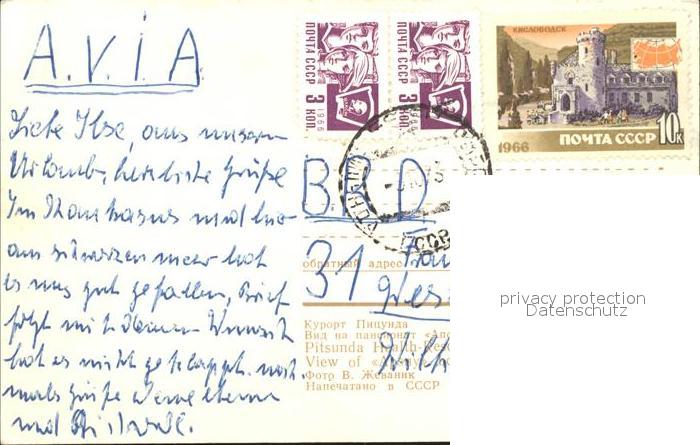 A.V.I.A
Liebe Ilse, aus unserem
Urlaub, herzliche Grüße
Im Kaukasus und hier
am schwarzen meer hat
es uns gut gefallen, Brief
folgt mit Deinem Wunsch
hat es nicht geklappt. noch-
mals Grüße Deine Eltern
und
ПОЧТА СССР
1966
3 КОП.
ПОЧТА СССР
1966
3 КОП.
КИСЛОВОДСК
1966
ПОЧТА СССР
10К
СССР
BRD
обратный адрес
31
Курорт Пицунда
Вид на пансионат «Апс
Pitsunda Health-Res
View of «
Фото В. Жеваник
Напечатано в СССР
privacy protection
Datenschutz